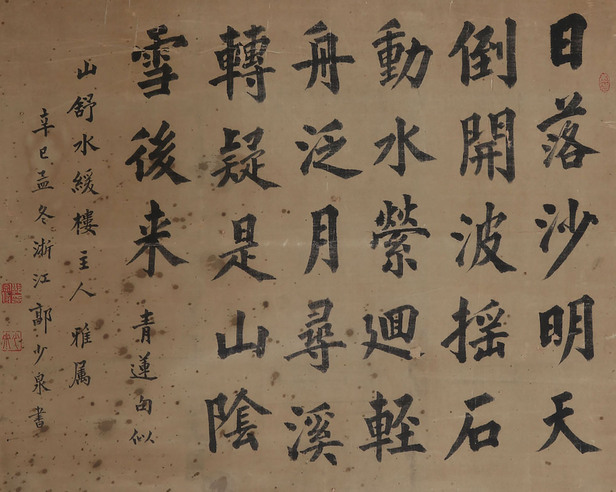 日落沙明天
倒開波摇石
動水縈廻軽
舟泛月尋溪
轉疑是山陰
雪後来
青蓮句似
山舒水緩樓主人雅属
辛巳孟冬浙江郭少泉書